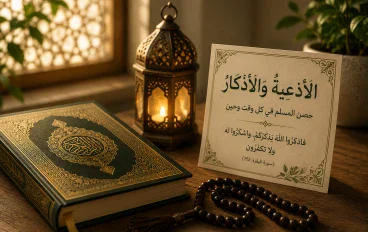 الأدعية والأذكار
حصن المسلم في كل وقت وحين
فاذكروا الله يذكركم، واشكروا له
ولا تكفرون